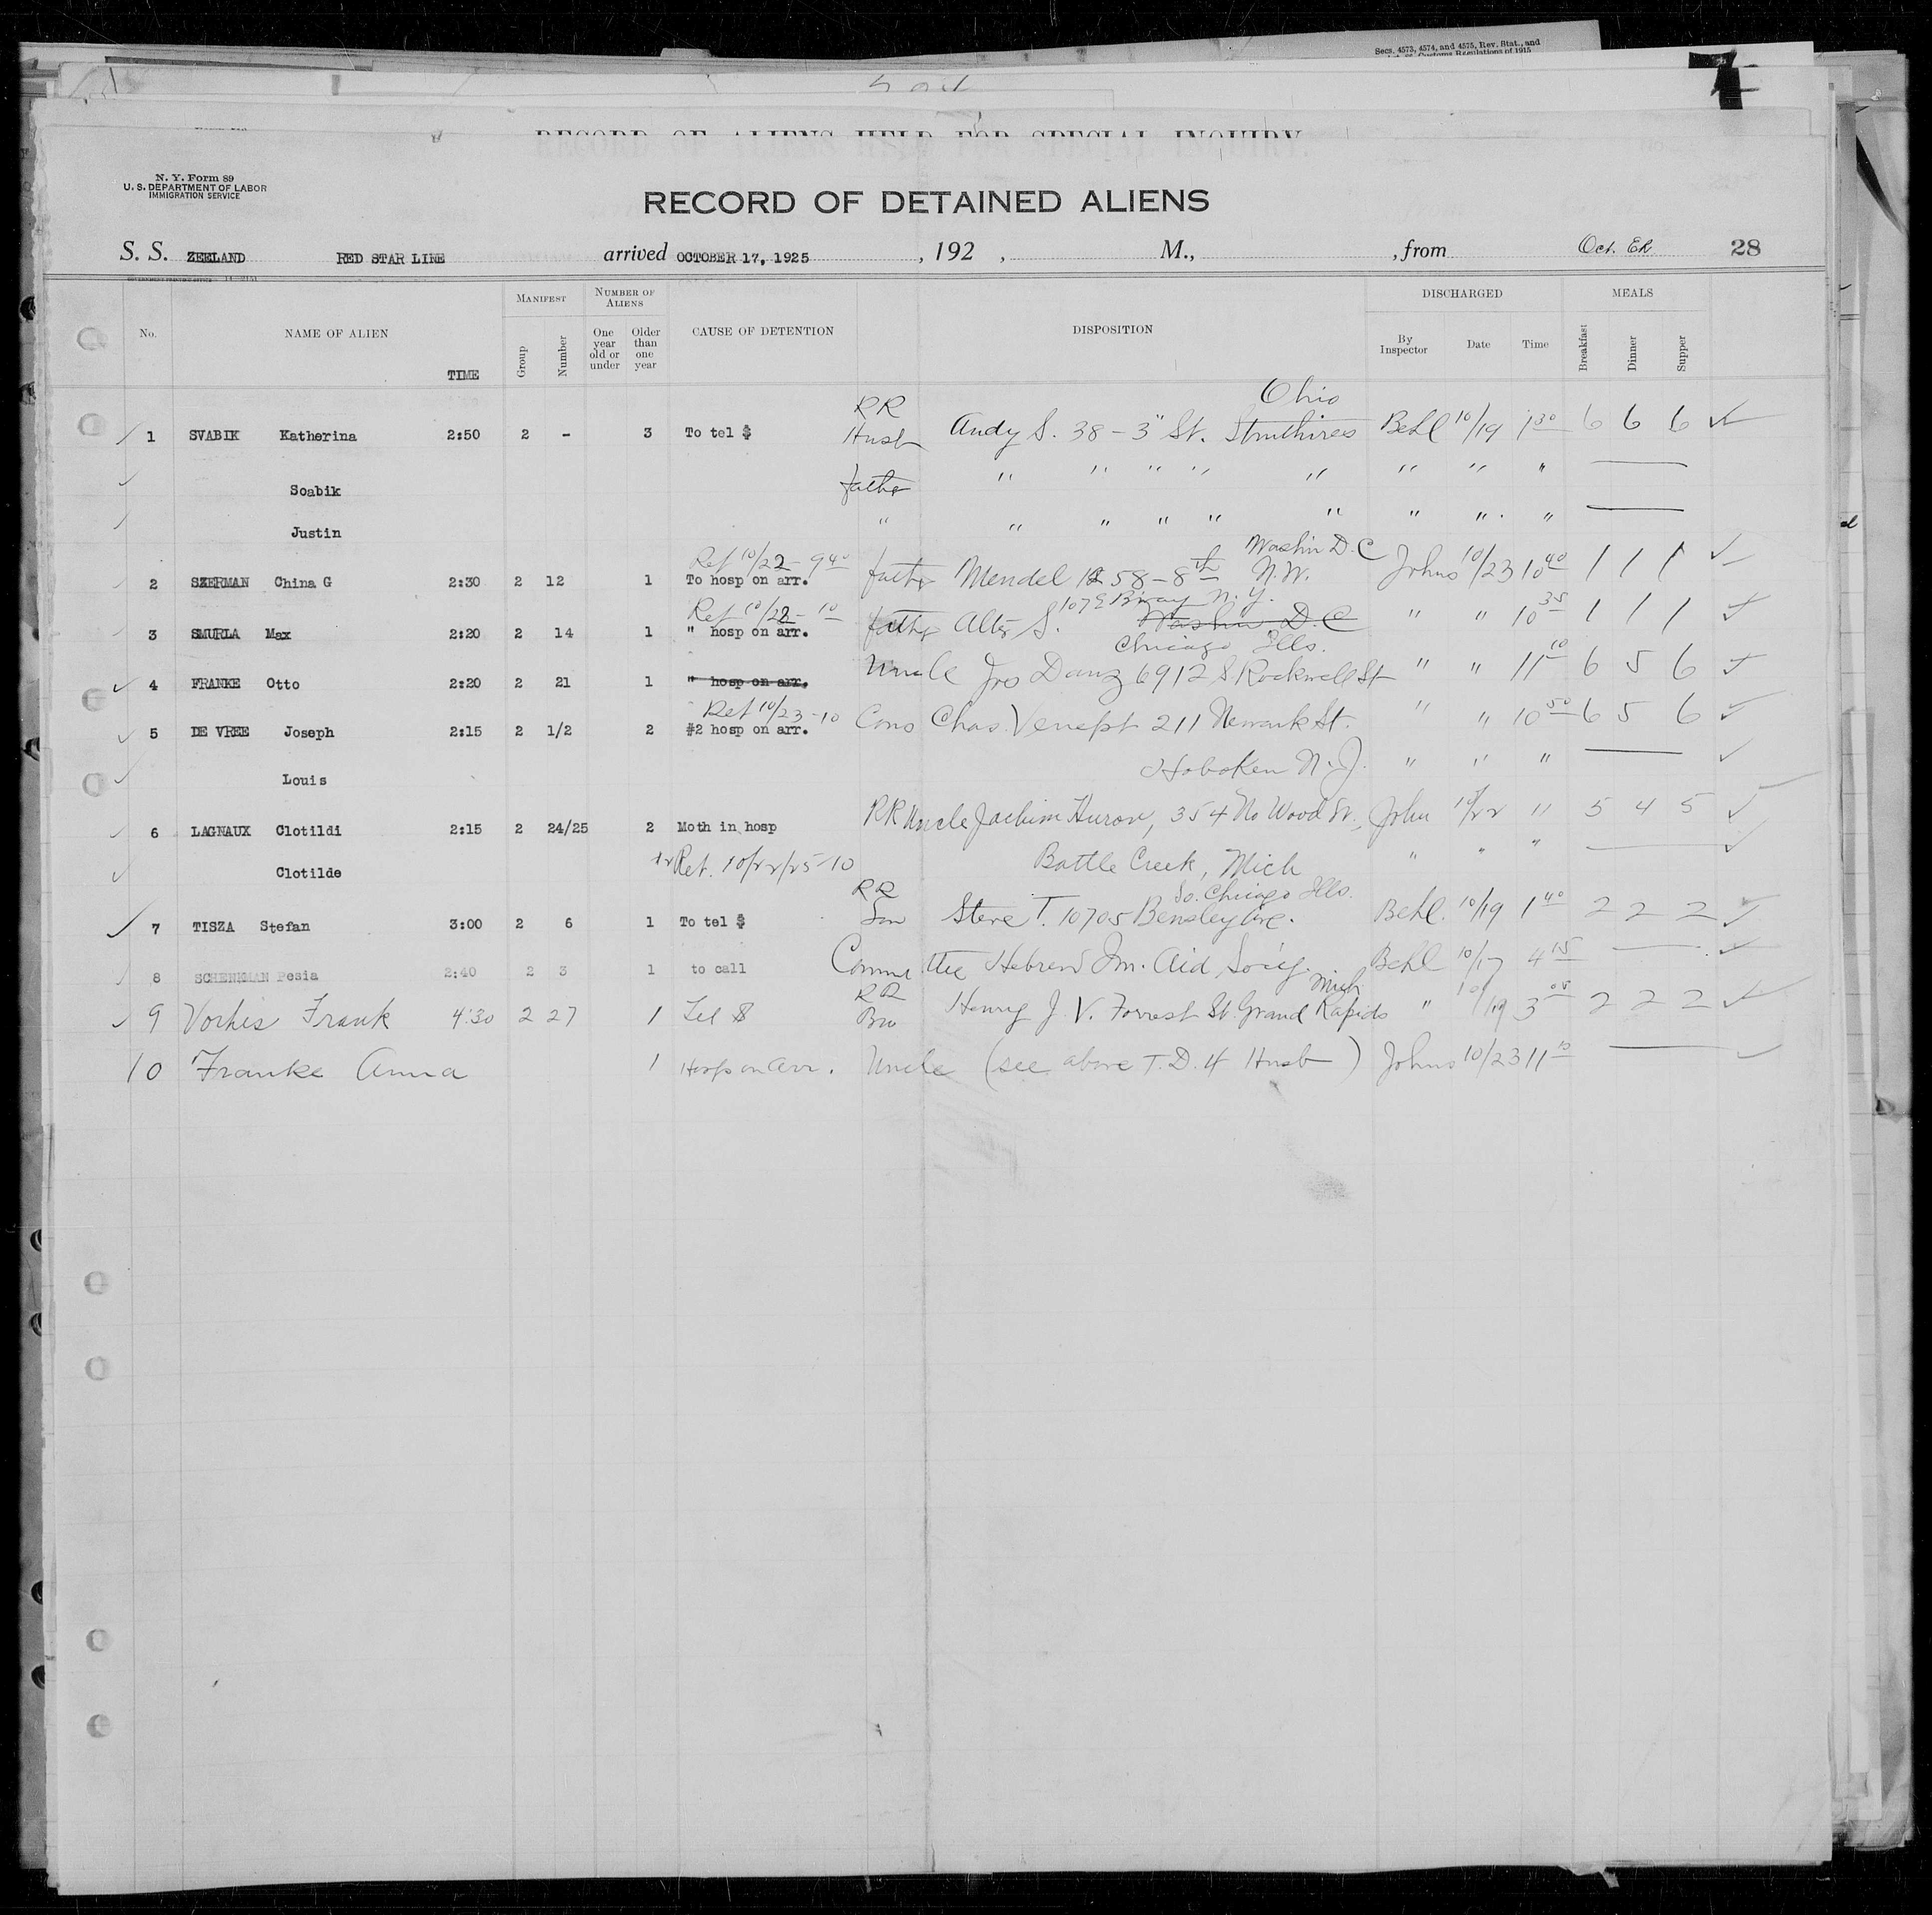 Secs. 4573, 4574, and 4575, Rev. Stat., and
Customs Regulations of 1915
RECORD OF ALIENS HELD FOR SPECIAL INQUIRY
N. Y. Form 89
U. S. DEPARTMENT OF LABOR
IMMIGRATION SERVICE
RECORD OF DETAINED ALIENS
S. S. ZEELAND RED STAR LINE arrived OCTOBER 17, 1925 , 192 , M., , from Oct. 28
No. NAME OF ALIEN TIME MANIFEST Group Number NUMBER OF ALIENS One year old or under Older than one year CAUSE OF DETENTION DISPOSITION DISCHARGED By Inspector Date Time MEALS Breakfast Dinner Supper
RR Ohio
1 SVABIK Katherina 2:50 2 - 3 To tel $ Husb Andy S. 38 - 3" St. Struthires Behl 10/19 1 30 6 6 6 ✓
Soabik father " " " " " " " "
Justin " " " " " " " " "
Ret 10/22 - 9 40 Washn D.C
2 SZERMAN China G 2:30 2 12 1 To hosp on arr. father Mendel 1258 - 8th N.W. Johns 10/23 10 40 1 1 1 ✓
Ret 10/22 - 10 107 E Bway N.Y.
3 SMURLA Max 2:20 2 14 1 " hosp on arr. father Alter S. Washn D.C " " 10 35 1 1 1 ✓
Chicago Ills.
4 FRANKE Otto 2:20 2 21 1 " hosp on arr. Uncle Jos Danz 6912 S Rockwell St " " 11 10 6 5 6 ✓
Ret 10/23 - 10
5 DE VREE Joseph 2:15 2 1/2 2 #2 hosp on arr. Cous Chas. Venept 211 Newark St. " " 10 50 6 5 6 ✓
Louis Hoboken N.J. " " " ✓
6 LAGNAUX Clotildi 2:15 2 24/25 2 Moth in hosp RR Uncle Jachim Huron, 354 No Wood St., John 10/22 " 5 4 5 ✓
Clotilde Ret. 10/22/25 - 10 Battle Creek, Mich " " " ✓
RR So. Chicago Ills.
7 TISZA Stefan 3:00 2 6 1 To tel $ Son Steve T. 10705 Bensley Ave. Behl. 10/19 1 40 2 2 2 ✓
8 SCHENKMAN Pesia 2:40 2 3 1 to call Committee Hebrew Im. Aid Soc'y. Behl 10/17 4 15 ✓
RR Mich
9 Vorhes Frank 4:30 2 27 1 Tel $ Bro Henry J. V. Forrest St. Grand Rapids " 10/19 3 05 2 2 2 ✓
10 Franke Anna 1 Hosp on arr. Uncle (see above T. D. 4 Husb) Johns 10/23 11 10 ✓